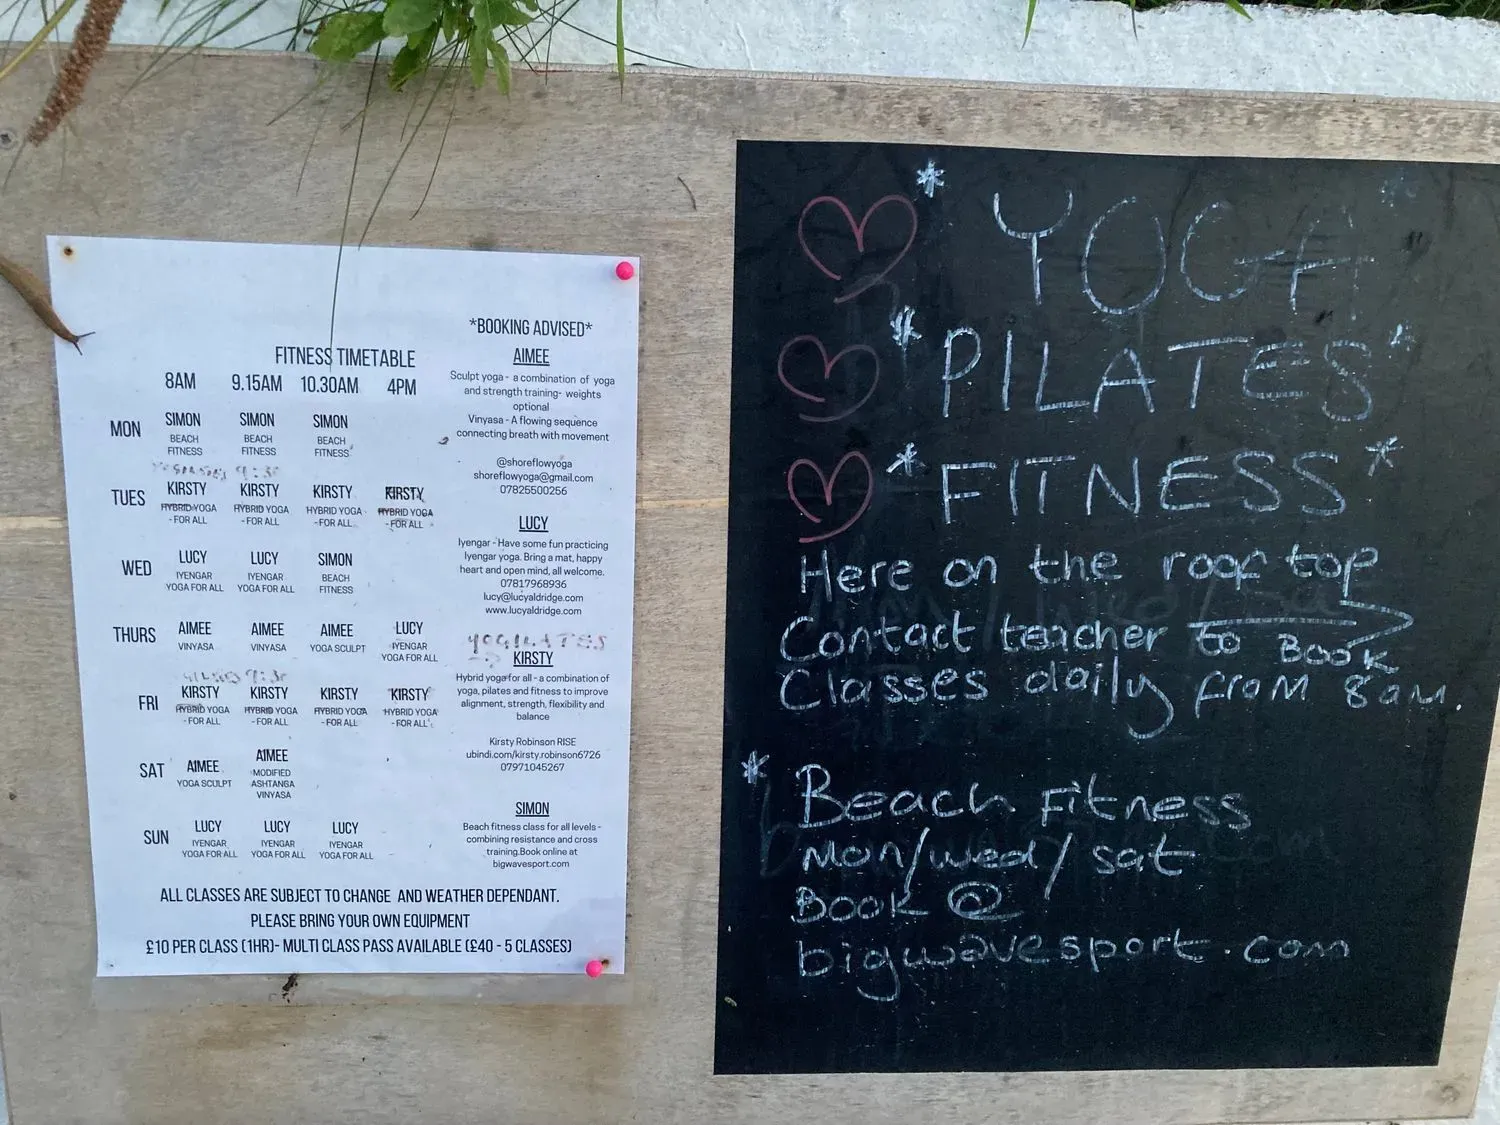 *BOOKING ADVISED*
FITNESS TIMETABLE
8AM 9.15AM 10.30AM 4PM
MON SIMON SIMON SIMON
BEACH BEACH BEACH
FITNESS FITNESS FITNESS
9:30
TUES KIRSTY KIRSTY KIRSTY KIRSTY
HYBRID YOGA HYBRID YOGA HYBRID YOGA HYBRID YOGA
- FOR ALL - FOR ALL - FOR ALL - FOR ALL
WED LUCY LUCY SIMON
IYENGAR IYENGAR BEACH
YOGA FOR ALL YOGA FOR ALL FITNESS
THURS AIMEE AIMEE AIMEE LUCY
VINYASA VINYASA YOGA SCULPT IYENGAR
YOGA FOR ALL
9:30
FRI KIRSTY KIRSTY KIRSTY KIRSTY
HYBRID YOGA HYBRID YOGA HYBRID YOGA HYBRID YOGA
- FOR ALL - FOR ALL - FOR ALL - FOR ALL
SAT AIMEE AIMEE
YOGA SCULPT MODIFIED
ASHTANGA
VINYASA
SUN LUCY LUCY LUCY
IYENGAR IYENGAR IYENGAR
YOGA FOR ALL YOGA FOR ALL YOGA FOR ALL
AIMEE
Sculpt yoga - a combination of yoga
and strength training- weights
optional
Vinyasa - A flowing sequence
connecting breath with movement
@shoreflowyoga
shoreflowyoga@gmail.com
07825500256
LUCY
Iyengar - Have some fun practicing
Iyengar yoga. Bring a mat, happy
heart and open mind, all welcome.
07817968936
lucy@lucyaldridge.com
www.lucyaldridge.com
YOGILATES
KIRSTY
Hybrid yoga for all - a combination of
yoga, pilates and fitness to improve
alignment, strength, flexibility and
balance
Kirsty Robinson RISE
ubindi.com/kirsty.robinson6726
07971045267
SIMON
Beach fitness class for all levels -
combining resistance and cross
training.Book online at
bigwavesport.com
ALL CLASSES ARE SUBJECT TO CHANGE AND WEATHER DEPENDANT.
PLEASE BRING YOUR OWN EQUIPMENT
£10 PER CLASS (1HR)- MULTI CLASS PASS AVAILABLE (£40 - 5 CLASSES)
* YOGA *
* PILATES *
* FITNESS *
Here on the roof top
Contact teacher to BOOK
Classes daily from 8am.
* Beach Fitness
Mon/wed/sat
BOOK @
bigwavesport.com